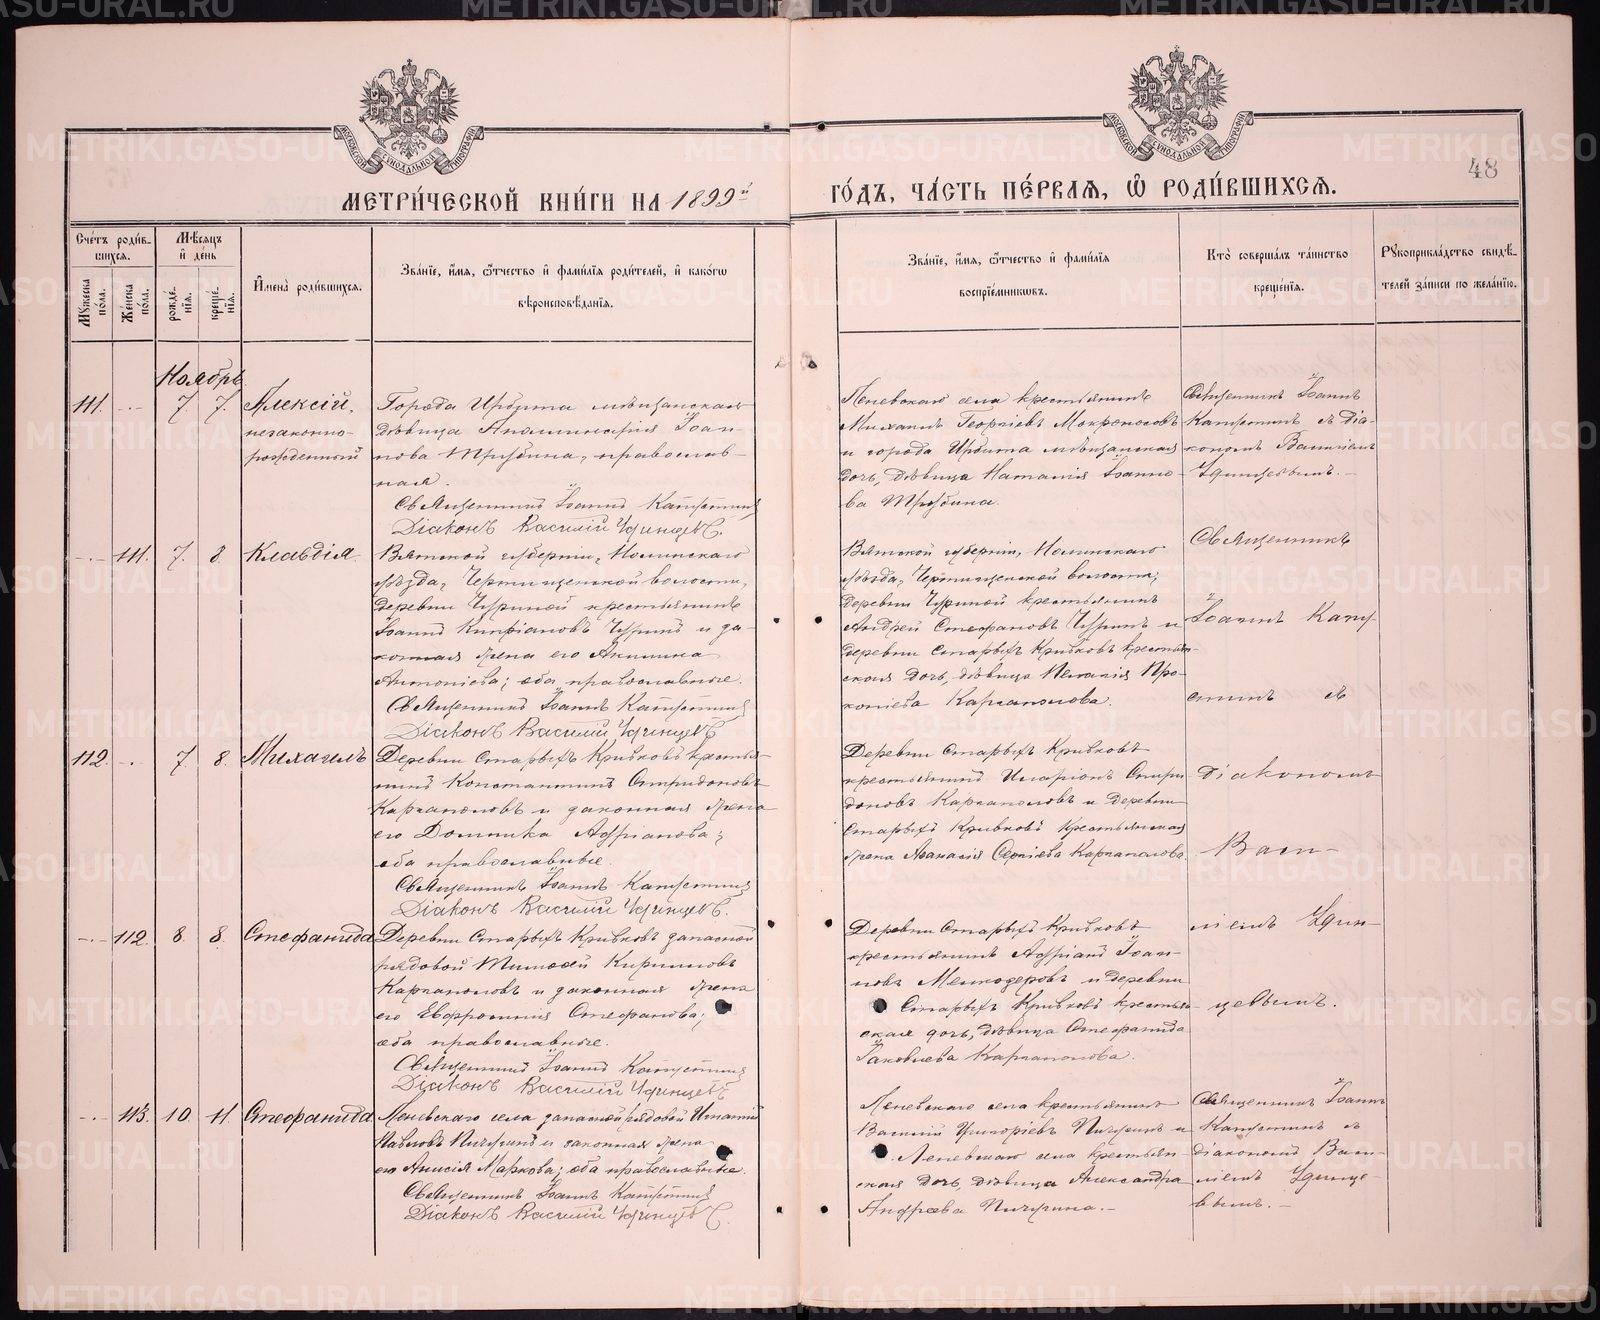 МЕТРИ́ЧЕСКОЙ КНИ́ГИ НА 1899й
ГО́ДЪ, ЧА́СТЬ ПЕ́РВАЯ, Ѡ РОДИ́ВШИХСЯ.
48
Сче́тъ роди́в-
шихся.
Мѣсяцъ
и де́нь
Мꙋжеска
по́ла.
Же́нска
по́ла.
рожде́-
нїя.
креще́-
нїя.
И҆мена̀ роди́вшихся.
Зва́нїе, и҆́мя, ѻ҆́тчество и҆ фами́лїя роди́телей, и҆ како́гѡ
вѣроисповѣ́данїя.
Зва́нїе, и҆́мя, ѻ҆́тчество и҆ фами́лїя
воспрїе́мниковъ.
Кто̀ соверша́лъ та́инство
креще́нїя.
Рꙋкоприкла́дство свидѣ́-
телей за́писи по жела́нїю.
Ноябрь
111. 7. 7. Алексій,
незаконно-
рожденный
Города Ирбита мѣщанская
дѣвица Аполлинарія Іоан-
нова Трубина, православ-
ная.
Священникъ Іоаннъ Капустинъ
Діаконъ Василій Удинцевъ.
Леневскаго села крестьянинъ
Михаилъ Георгіевъ Мокроносовъ
и города Ирбита мѣщанская
дочь, дѣвица Наталія Іоанно-
ва Трубина.
Священникъ Іоаннъ
Капустинъ съ діа-
кономъ Василіемъ
Удинцевымъ.
111. 7. 8. Клавдія.
Вятской губерніи, Нолинскаго
уѣзда, волости,
деревни Чуриной крестьянинъ
Іоаннъ Кипріановъ Чуринъ и за-
конная жена его Акилина
Антоніева; оба православные.
Священникъ Іоаннъ Капустинъ
Діаконъ Василій Удинцевъ.
Вятской губерніи, Нолинскаго
уѣзда, волости,
деревни Чуриной крестьянинъ
Андрей Стефановъ Чуринъ и
деревни Старыхъ Кривковъ крестьян-
ская дочь, дѣвица Пелагія Про-
копіева Каргаполова.
Священникъ
Іоаннъ Капу-
стинъ съ
112. 7. 8. Михаилъ
Деревни Старыхъ Кривковъ крестья-
нинъ Константинъ Спиридоновъ
Каргаполовъ и законная жена
его Домника Адріанова;
оба православные.
Священникъ Іоаннъ Капустинъ
Діаконъ Василій Удинцевъ.
Деревни Старыхъ Кривковъ
крестьянинъ Иларіонъ Спири-
доновъ Каргаполовъ и деревни
Старыхъ Кривковъ крестьянская
жена Аѳанасія Сергіева Каргаполова
діакономъ
Васи-
112. 8. 8. Стефанида
Деревни Старыхъ Кривковъ запасной
рядовой Тимоѳей Кирилловъ
Каргаполовъ и законная жена
его Евфросинія Стефанова;
оба православные.
Священникъ Іоаннъ Капустинъ
Діаконъ Василій Удинцевъ
Деревни Старыхъ Кривковъ
крестьянинъ Адріанъ Іоан-
новъ Мелкозеровъ и деревни
Старыхъ Кривковъ крестьян-
ская дочь, дѣвица Стефанида
Іаковлева Каргаполова.
ліемъ Удин-
цевымъ.
113. 10. 11. Стефанида.
Леневскаго села запасной рядовой Игнатій
Павловъ Пичугинъ и законная жена
его Анисія Маркова; оба православные.
Священникъ Іоаннъ Капустинъ
Діаконъ Василій Удинцевъ.
Леневскаго села крестьянинъ
Василій Григоріевъ Пичугинъ и
Леневскаго села крестьян-
ская дочь, дѣвица Александра
Андреева Пичугина.
Священникъ Іоаннъ
Капустинъ съ
діакономъ Васи-
ліемъ Удинце-
вымъ.